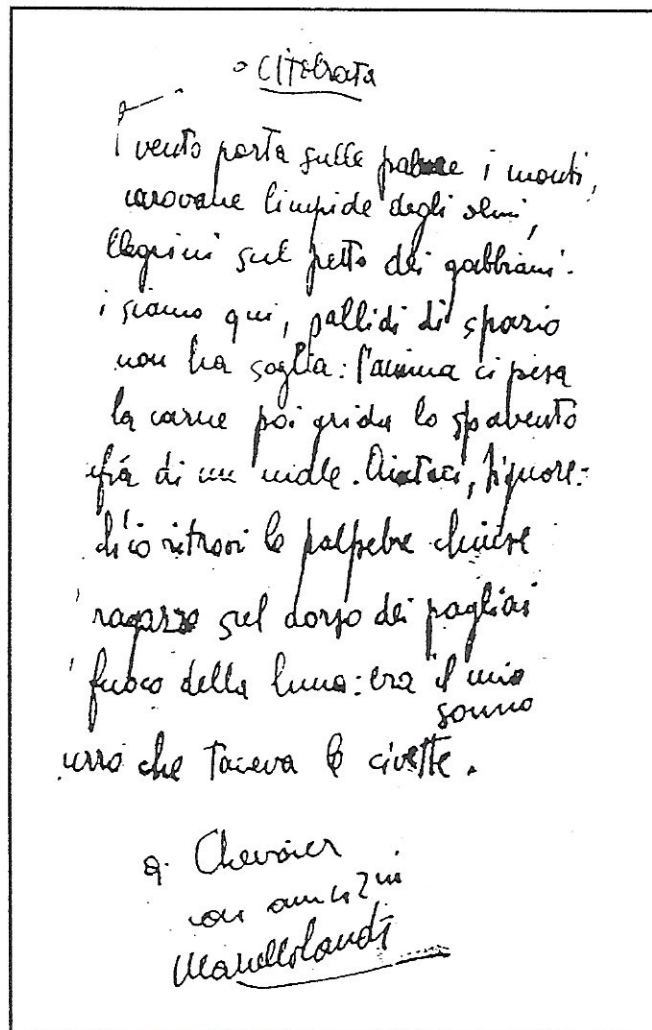 vento porta sulle palme i monti,
carovane limpide degli olmi,
llegrini sul petto dei gabbiani.
i siamo qui, pallidi di spazio
non ha soglia: l'anima ci pesa
la carne poi grida lo spavento
di un male. Aiutaci, Signore:
ch'io ritrovi le palpebre chiuse
ragazze sul dorso dei pagliai
fuoco della luna: era il mio
sonno
urro che taceva le civette.
a Chevrier
con amicizia